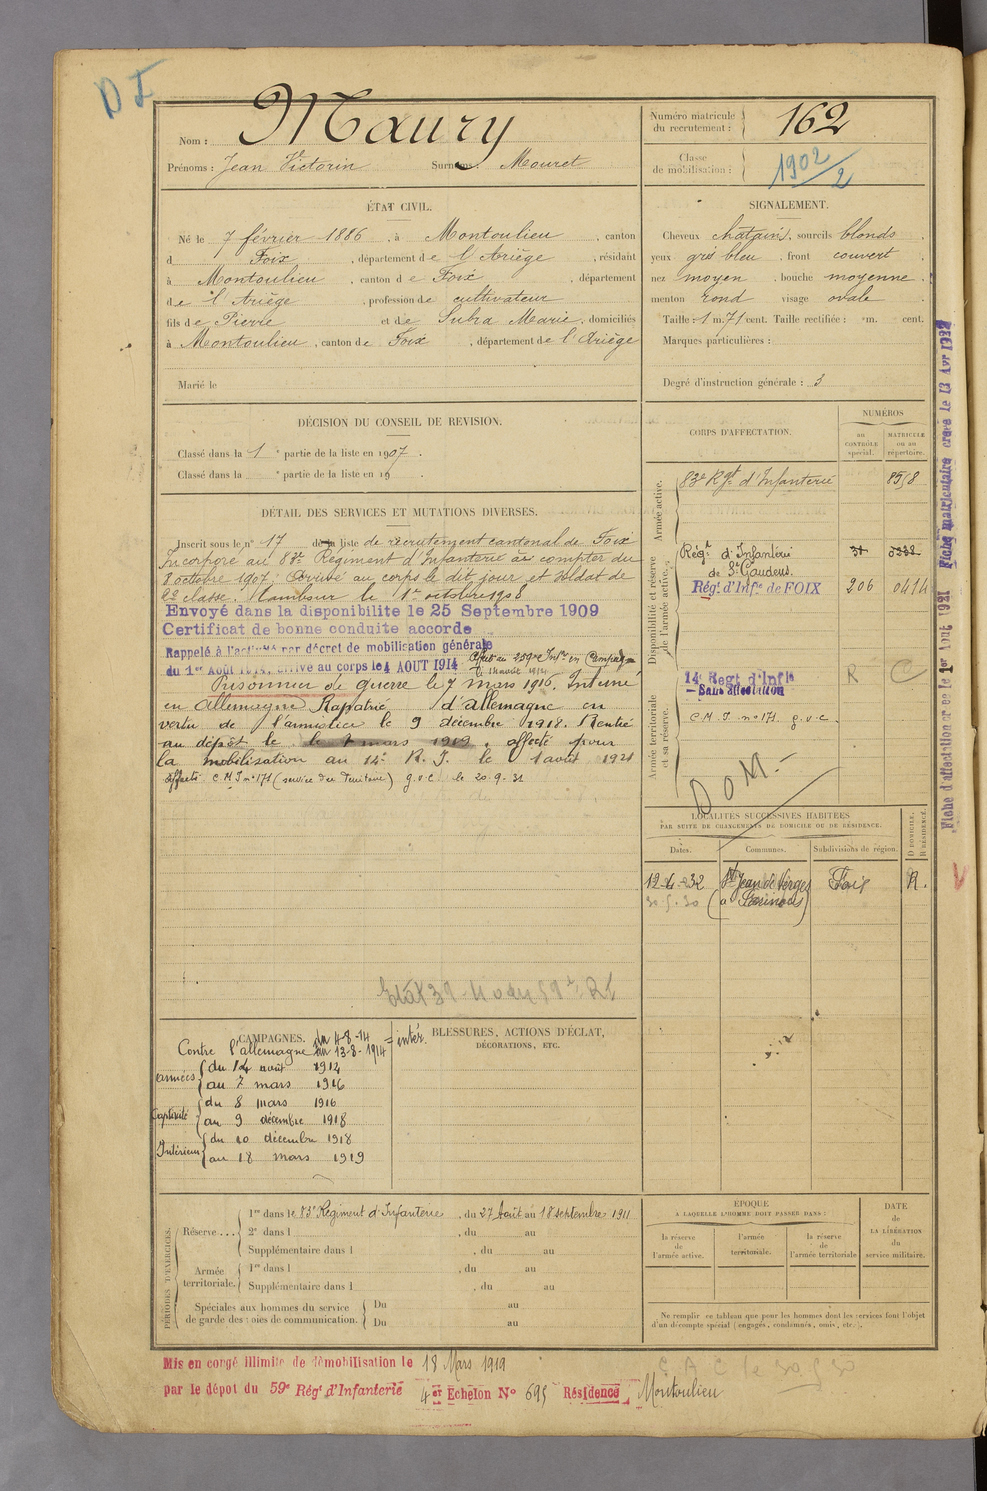 D I
Nom : Maury
Prénoms : Jean Victorin Surnoms : Mouret
Numéro matricule du recrutement : 162
Classe de mobilisation : 1902/2
ÉTAT CIVIL.
Né le 7 février 1886, à Montoulieu, canton
d Foix, département de l'Ariège, résidant
à Montoulieu, canton de Foix, département
de l'Ariège, profession de cultivateur
fils de Pierre et de Subra Marie, domiciliés
à Montoulieu, canton de Foix, département de l'Ariège
Marié le
SIGNALEMENT.
Cheveux chatains, sourcils blonds
yeux gris bleu, front couvert
nez moyen, bouche moyenne
menton rond visage ovale
Taille : 1 m. 71 cent. Taille rectifiée : m. cent.
Marques particulières :
Degré d'instruction générale : 3
DÉCISION DU CONSEIL DE REVISION.
Classé dans la 1e partie de la liste en 1907.
Classé dans la e partie de la liste en 19
DÉTAIL DES SERVICES ET MUTATIONS DIVERSES.
Inscrit sous le n° 17 de la liste de recrutement cantonal de Foix
Incorporé au 83e Régiment d'Infanterie à compter du
8 octobre 1907; Arrivé au corps le dit jour et soldat de
2e classe. Tambour le 1er octobre 1908
Envoyé dans la disponibilite le 25 Septembre 1909
Certificat de bonne conduite accorde
Rappelé à l'activité par décret de mobilisation générale
du 1er Août 1914, arrivé au corps le 4 AOUT 1914
Prisonnier de guerre le 7 mars 1916. Interné
en Allemagne Rapatrié d'allemagne en
vertu de l'armistice le 9 décembre 1918. Rentré
au dépôt le le 7 mars 1919, affecté pour
la mobilisation au 14e R. I. le 1 août 1921
affecté C.M.I n° 171 (service du Territoire) g.v.c le 20-9-31
CORPS D'AFFECTATION.
NUMÉROS
au CONTRÔLE spécial.
MATRICULE ou au répertoire.
Armée active.
83e Rgt d'Infanterie 8558
Disponibilité et réserve de l'armée active.
Régt d'Infanterie
de St Gaudens.
Régt d'Infie de FOIX 206 0414
Armée territoriale et sa réserve.
14e Regt d'Infie R C
— Sans affectation
C.M.I. n° 171 g.v.c.
DOM.
LOCALITÉS SUCCESSIVES HABITÉES
PAR SUITE DE CHANGEMENTS DE DOMICILE OU DE RÉSIDENCE.
Dates. Communes. Subdivisions de région.
D DOMICILE. R RÉSIDENCE.
12-4-32 St Jean de Verges Foix R.
Fiche d'affectation créée le 1er Aout 1921 Fiche matriculaire créée le 13 Avr 1932
CAMPAGNES.
du 4-8-14
au 13-8-1914 = intér.
Contre l'allemagne
armées
du 14 août 1914
au 7 mars 1916
Captivité
du 8 mars 1916
au 9 décembre 1918
Intérieur
du 10 décembre 1918
au 18 mars 1919
BLESSURES, ACTIONS D'ÉCLAT,
DÉCORATIONS, ETC.
PÉRIODES D'EXERCICES.
Réserve ...
1re dans le 83e Régiment d'Infanterie, du 27 Août au 18 septembre 1911
2e dans l , du au
Supplémentaire dans l , du au
Armée territoriale.
1re dans l , du au
Supplémentaire dans l , du au
Spéciales aux hommes du service
de garde des voies de communication.
Du au
Du au
ÉPOQUE
A LAQUELLE L'HOMME DOIT PASSER DANS :
la réserve de l'armée active.
l'armée territoriale.
la réserve de l'armée territoriale
DATE de LA LIBÉRATION du service militaire.
Ne remplir ce tableau que pour les hommes dont les services font l'objet
d'un décompte spécial (engagés, condamnés, omis, etc.).
Mis en congé illimité de démobilisation le 18 Mars 1919
par le dépôt du 59e Régt d'Infanterie 4er Echelon N° 695 Résidence Montoulieu